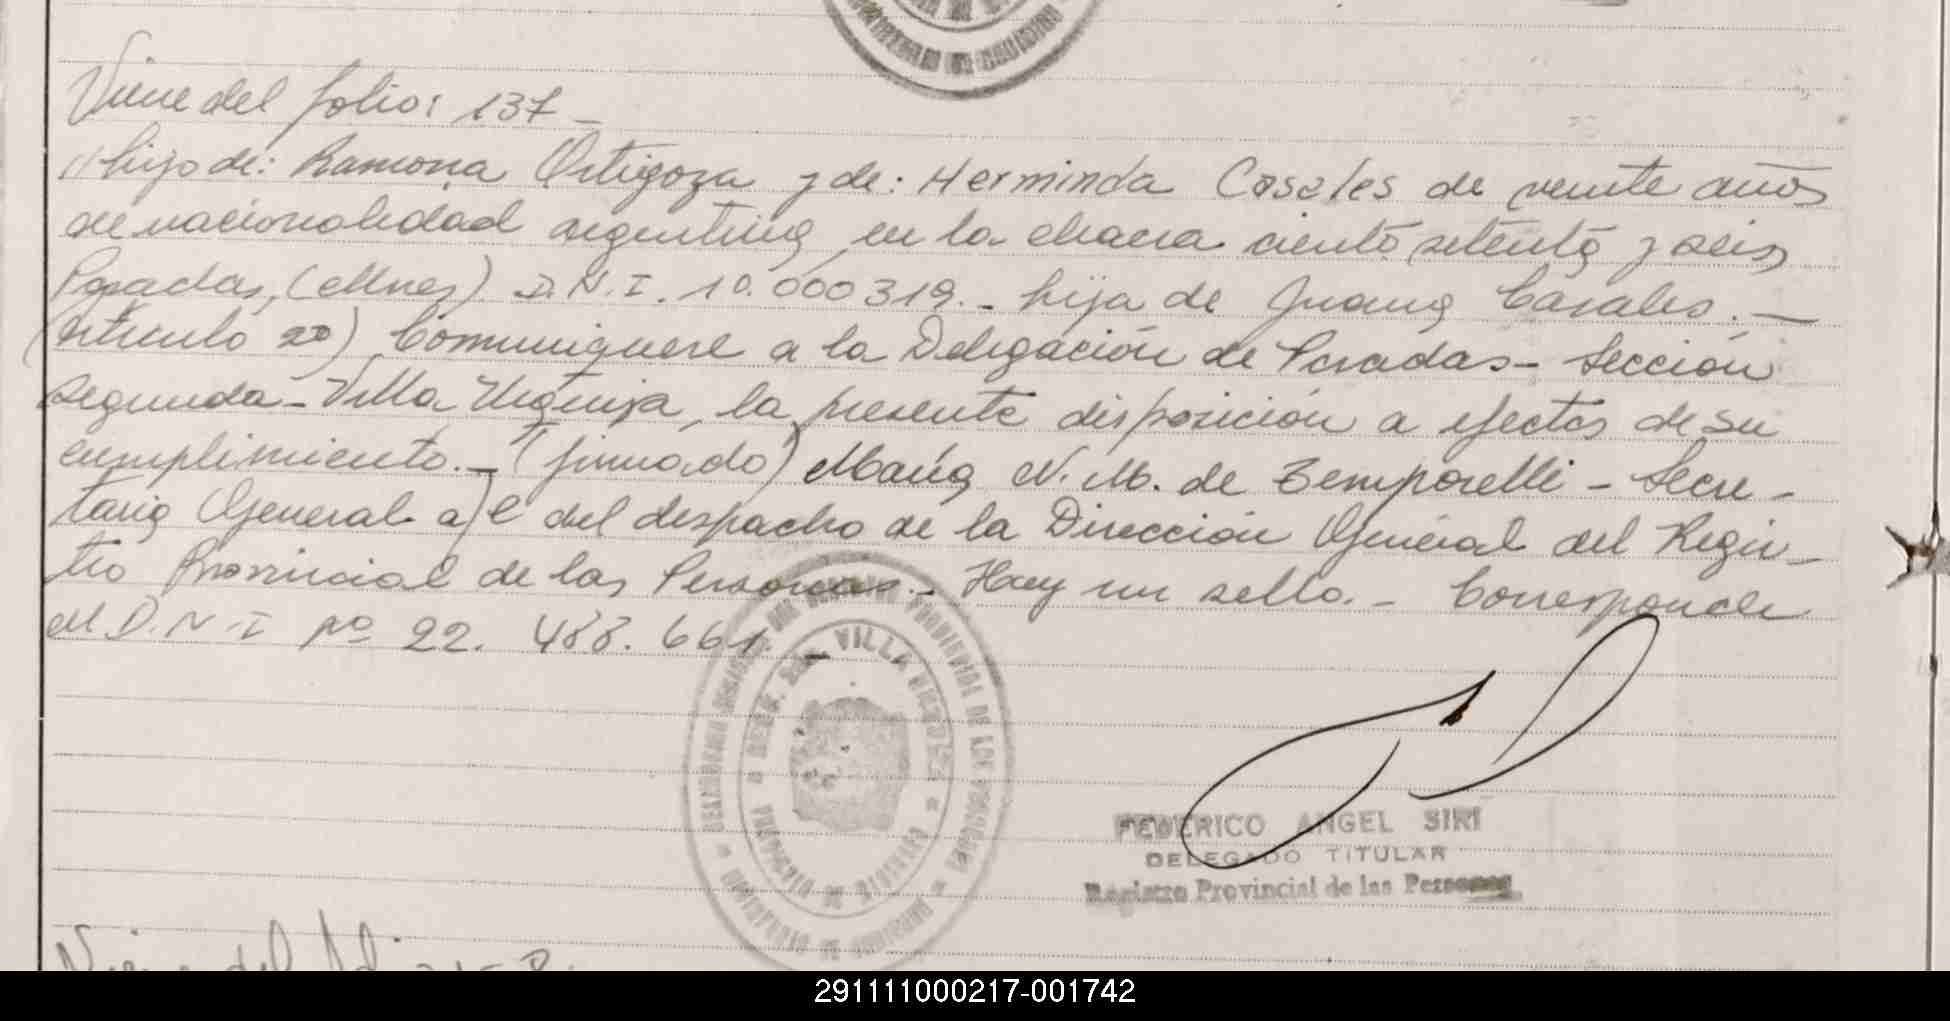 Viene del folio: 137 _
// hijo de: Ramona Ortigoza y de: Herminda Casales de veinte años
de nacionalidad argentina, en la chacra ciento setenta y seis
Posadas, (Mnes) D.N.I. 10.000319. - hija de Juana Casales. —
(Artículo 2º) Comuníquese a la Delegación de Posadas - Sección
Segunda - Villa Urquiza, la presente disposición a efectos de su
cumplimiento. - (firmado) María N. M. de Temporelli - Secre -
taria General a/c del despacho de la Dirección General del Regis -
tro Provincial de las Personas. - Hay un sello. - Corresponde
al D.N.I nº 22. 488. 661. _
VILLA URQUIZA
PROVINCIA DE MISIONES
FEDERICO ANGEL SIRI
DELEGADO TITULAR
Registro Provincial de las Personas
Viene del folio
291111000217-001742